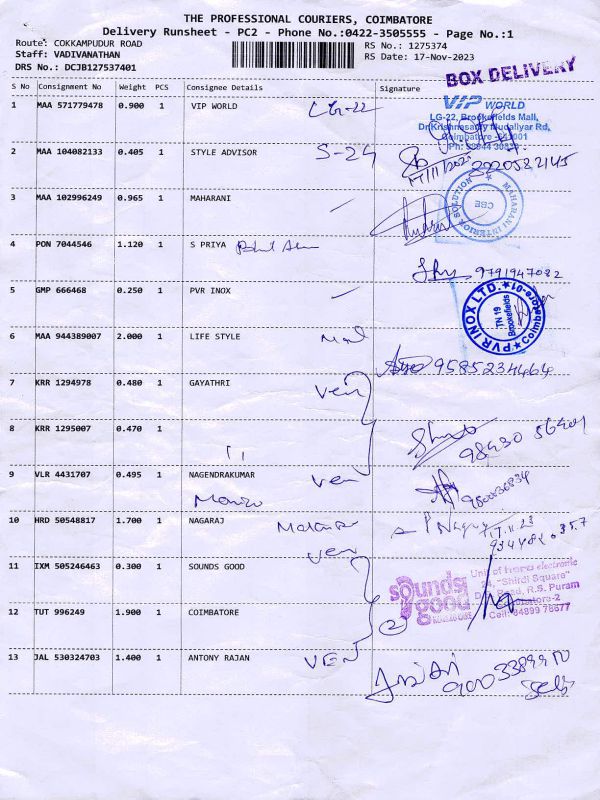 THE PROFESSIONAL COURIERS, COIMBATORE
Delivery Runsheet - PC2 - Phone No.:0422-3505555 - Page No.:1
Route: COKKAMPUDUR ROAD
Staff: VADIVANATHAN
DRS No.: DCJB127537401
RS No.: 1275374
RS Date: 17-Nov-2023
BOX DELIVERY
S No Consignment No Weight PCS Consignee Details Signature
1 MAA 571779478 0.900 1 VIP WORLD LG-22
VIP WORLD
LG-22, Brookefields Mall,
Dr.Krishnasamy Mudaliyar Rd,
Coimbatore -641001
2 MAA 104082133 0.405 1 STYLE ADVISOR S-24
3 MAA 102996249 0.965 1 MAHARANI
MAHARANI INTERIOR SOLUTION
CBE
4 PON 7044546 1.120 1 S PRIYA
9791947082
5 GMP 666468 0.250 1 PVR INOX
PVR INOX LTD.
TN 19
Brookefields
Coimbatore-01
6 MAA 944389007 2.000 1 LIFE STYLE
9585234464
7 KRR 1294978 0.480 1 GAYATHRI Ven
8 KRR 1295007 0.470 1 "
9 VLR 4431707 0.495 1 NAGENDRAKUMAR Ven
10 HRD 50548817 1.700 1 NAGARAJ
17.11.23
Ven
11 IXM 505246463 0.300 1 SOUNDS GOOD
sounds good
Unit of hero electronic
24, "Shirdi Square"
R.S. Puram
12 TUT 996249 1.900 1 COIMBATORE
2
13 JAL 530324703 1.400 1 ANTONY RAJAN VEN